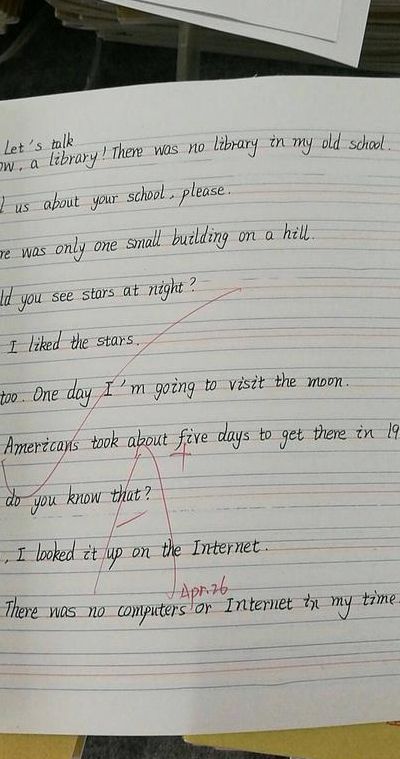 Let's talk
ow, a library! There was no library in my old school.
l us about your school, please.
re was only one small building on a hill.
ld you see stars at night?
I liked the stars.
too. One day I'm going to visit the moon.
Americans took about five days to get there in 19
do you know that?
, I looked it up on the Internet.
Apr.26
There was no computers or Internet in my time.